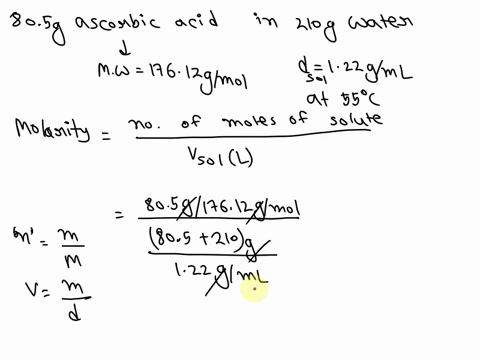 80.5g ascorbic acid in 210g water
↓
M.W = 176.12g/mol
d sol = 1.22g/mL
at 55°C
Molarity = no. of moles of solute
Vsol(L)
= 80.5g/176.12g/mol
(80.5 + 210)g
1.22g/mL
n' = m
M
V = m
d